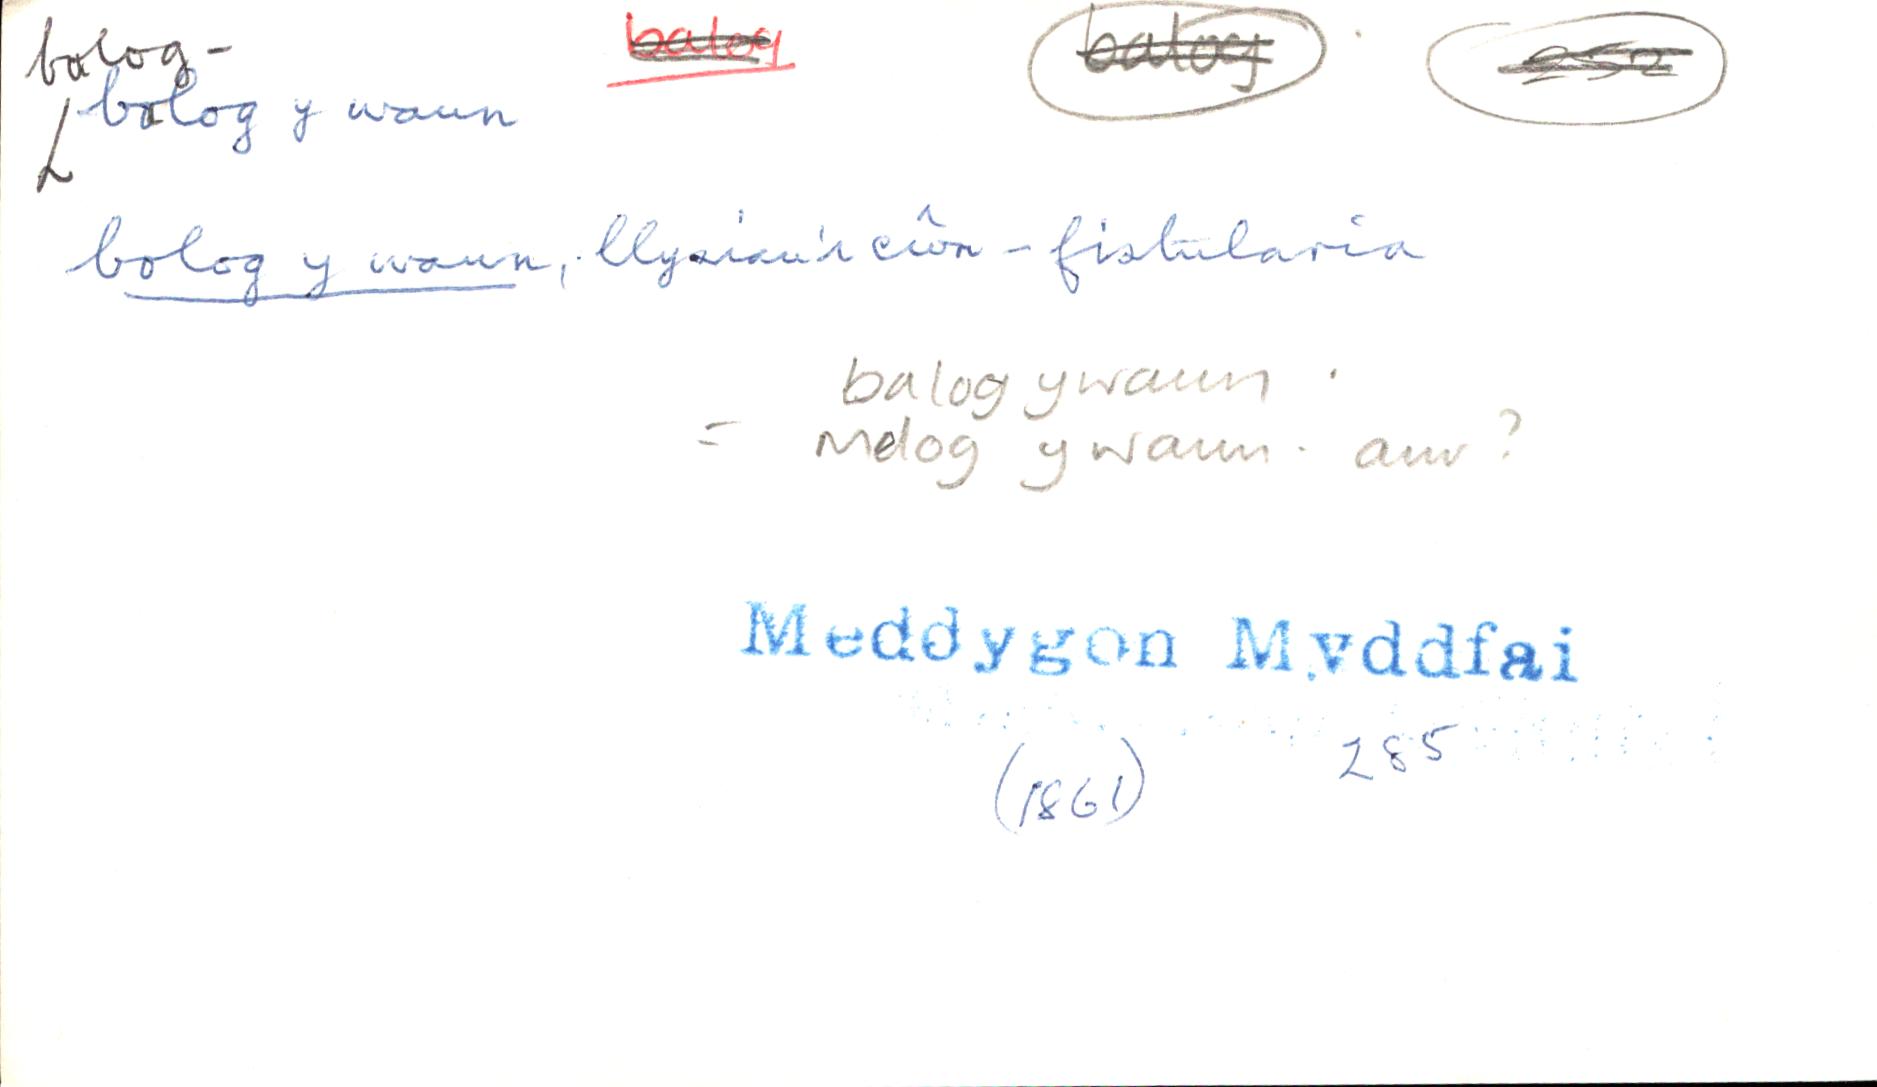 balog-   balog   balog   252
balog y waun
bolog y waun, llysiau'r cŵn - fistularia
balog y waun.
= melog y waun. anv?
Meddygon Myddfai
(1861) 285